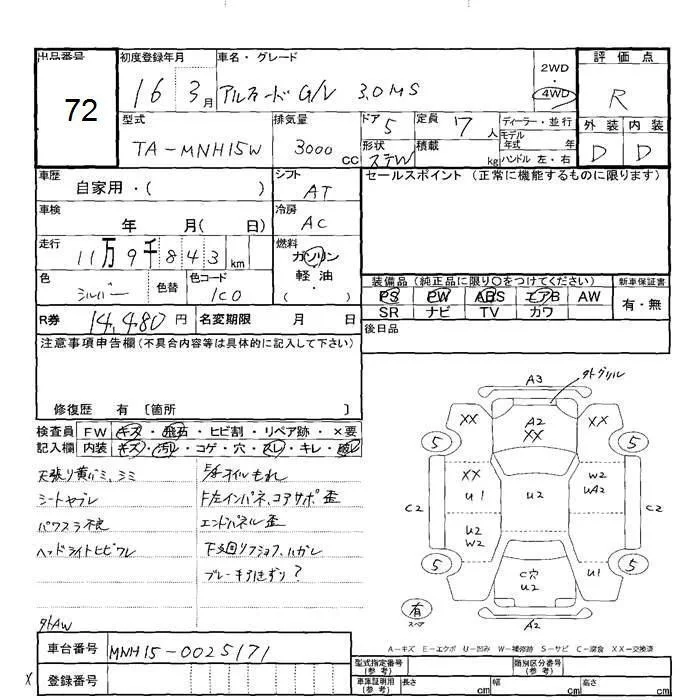 出品番号 初度登録年月 車名・グレード 2WD・4WD 評価点
72 16 3月 アルファードG/V 3.0MS R
型式 排気量 ドア 5 定員 7人 ディーラー・並行 外装 内装
TA-MNH15W 3000CC 形状 ステW 積載 kg モデル年式 年 ハンドル 左・右 D D
車歴 自家用・( ) シフト AT セールスポイント (正常に機能するものに限ります)
車検 年 月( 日) 冷房 AC
走行 11万9千843km 燃料 ガソリン 軽油 ・( )
色 シルバー 色替 色コード 1C0 装備品 (純正品に限り〇をつけてください) 新車保証書
PS PW ABS エアB AW 有・無
R券 14,480円 名変期限 月 日 SR ナビ TV カワ
注意事項申告欄(不具合内容等は具体的に記入して下さい) 後日品
修復歴 有 〔箇所 〕
検査員 FW キズ・飛石・ヒビ割・リペア跡・×要
記入欄 内装 キズ・汚れ・コゲ・穴・スレ・キレ・破レ
天張り黄バミ、シミ
シートヤブレ
パワスラ不良
ヘッドライトヒビワレ
外AW
オイルもれ
F左インパネ、コアサポ歪
エンドパネル歪
ブレーキ引きずり?
外グリル
A3
XX A2 XX XX
5 5
XX U1 U2 W2 UA2
C2 C2
U2 W2
5 C穴 U2 U1 5
有 スペア
A2
A-キズ E-エクボ U-凹み W-補修跡 S-サビ C-腐食 XX-交換済
車台番号 MNH15-0025171
登録番号
型式指定番号(参考) 類別区分番号(参考)
車庫証明用(参考) 長さ cm 幅 cm 高さ cm